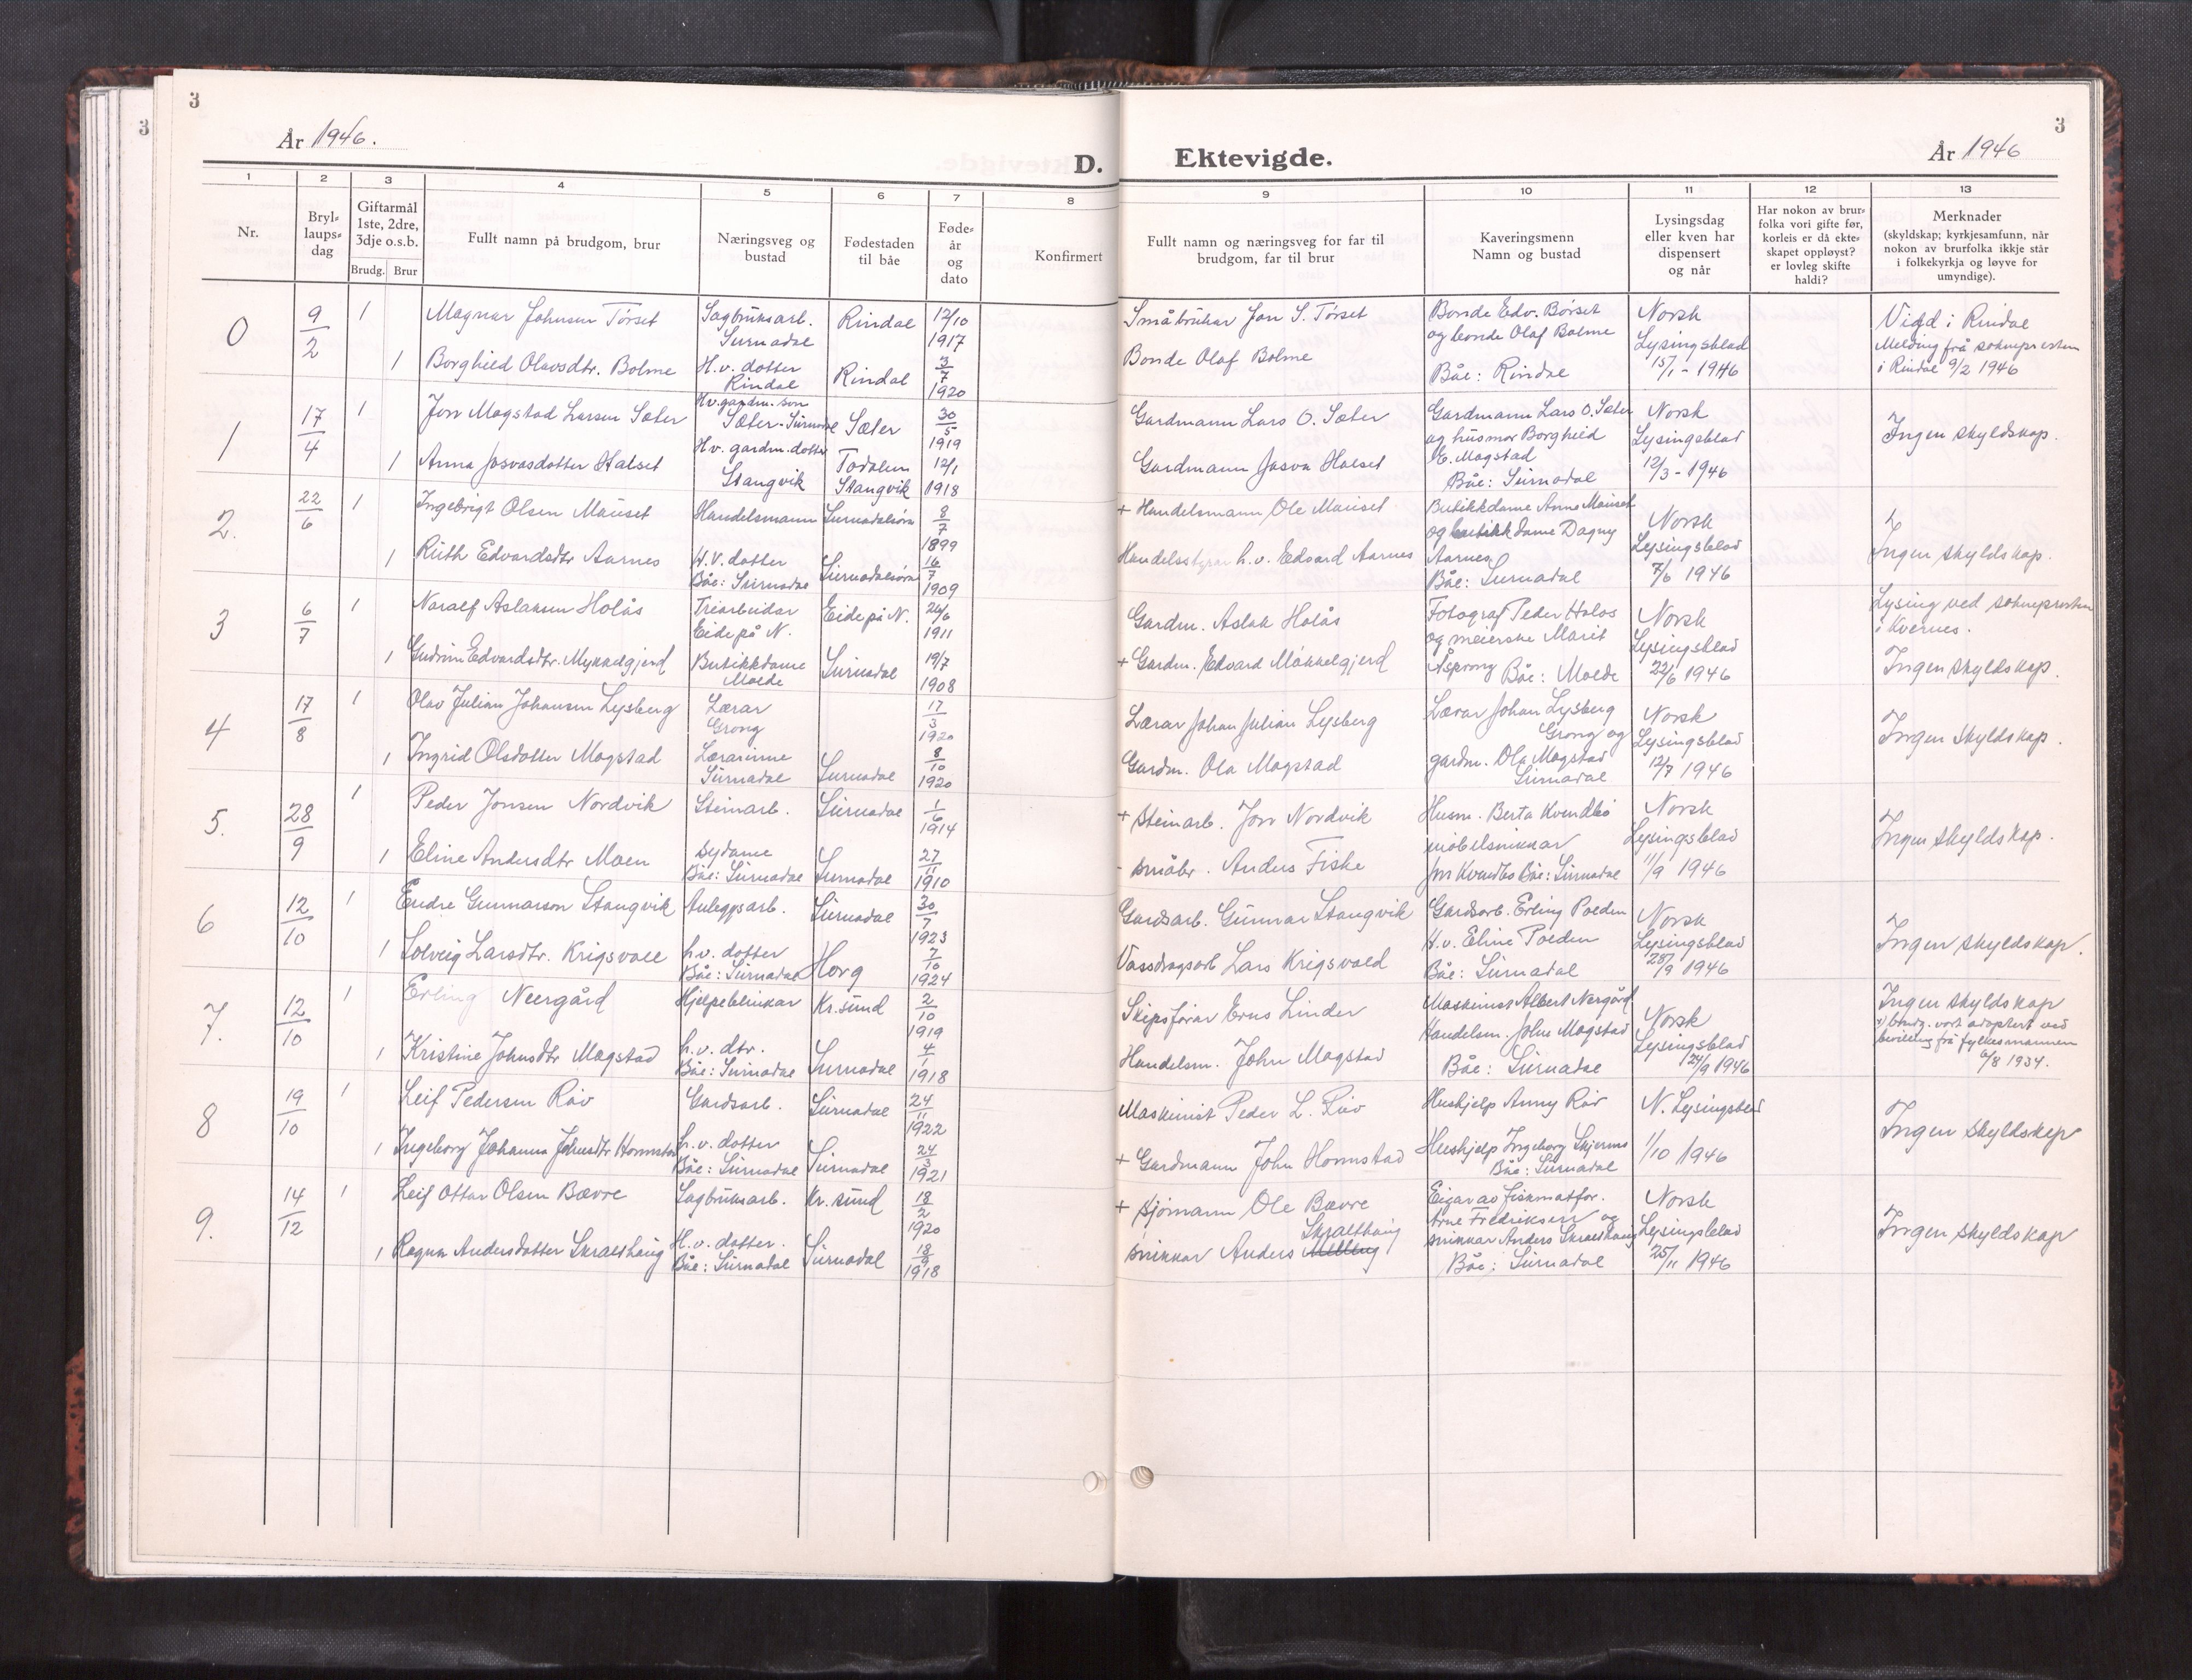 3
3
År 1946.
D.
1
2
3
4
5
6
7
8
Nr.
Bryl-
laups-
dag
Giftarmål
1ste, 2dre,
3dje o.s.b.
Brudg. Brur
Fullt namn på brudgom, brur
Næringsveg og
bustad
Fødestaden
til båe
Føde-
år
og
dato
Konfirmert
0
9/2
1
Magnar Johnsen Tørset
Sagbruksarb.
Surnadal
Rindal
12/10
1917
1
Borghild Olavsdtr. Bolme
H.v. dotter
Rindal
Rindal
3/7
1920
1
17/4
1
Jon Magstad Larsen Sæter
Hv. gardm. son
Sæter - Surnadal
Sæter
30/5
1919
1
Anna Josvasdotter Halset
H v. gardm. dotter
Stangvik
Todalen
Stangvik
12/1
1918
2.
22/6
1
Ingebrigt Olsen Mauset
Handelsmann
Surnadalsøra
8/7
1899
1
Ruth Edvardsdtr Aarnes
H.V. dotter
Båe: Surnadal
Surnadalsøra
16/7
1909
3
6/7
1
Noralf Aslaksen Holås
Trearbeidar
Eide på N.
Eide på N.
24/6
1911
1
Gudrun Edvardsdtr. Mykkelgjerd
Butikkdame
Molde
Surnadal
19/7
1908
4
17/8
1
Olav Julian Johansen Lysberg
Lærar
Grong
17/3
1920
1
Ingrid Olsdotter Magstad
Lærarinne
Surnadal
Surnadal
8/10
1920
5.
28/9
1
Peder Jonsen Nordvik
Steinarb.
Surnadal
1/6
1914
1
Eline Andersdtr Moen
sydame
Båe: Surnadal
Surnadal
27/11
1910
6
12/10
1
Endre Gunnarson Stangvik
Anleggsarb.
Surnadal
30/7
1923
1
Solveig Larsdtr. Krigsvoll
h.v. dotter
Båe: Surnadal
Horg
7/10
1924
7.
12/10
1
Erling Neergård
Hjelpeblikkar
Kr.sund
2/10
1919
1
Kristine Johnsdtr Magstad
h.v. dtr.
Båe: Surnadal
Surnadal
4/1
1918
8
19/10
1
Leif Pedersen Røv
Gardsarb.
Surnadal
24/11
1922
1
Ingeborg Johanna Johnsdtr Hornstad
h.v. dotter
Båe: Surnadal
Surnadal
24/3
1921
9.
14/12
1
Leif Ottar Olsen Bævre
Sagbruksarb.
Kr.sund
18/2
1920
1
Ragna Andersdotter Skralthaug
H.v. dotter.
Båe: Surnadal
Surnadal
18/9
1918
3
Ektevigde.
År 1946
9
10
11
12
13
Fullt namn og næringsveg for far til
brudgom, far til brur
Kaveringsmenn
Namn og bustad
Lysingsdag
eller kven har
dispensert
og når
Har nokon av brur-
folka vori gifte før,
korleis er då ekte-
skapet oppløyst?
er lovleg skifte
haldi?
Merknader
(skyldskap; kyrkjesamfunn, når
nokon av brurfolka ikkje står
i folkekyrkja og løyve for
umyndige).
Småbrukar Jon S. Tørset
Bonde Olaf Bolme
Bonde Edv. Børset
og bonde Olaf Bolme
Båe: Rindal
Norsk
Lysingsblad
15/1 - 1946
Vigd i Rindal
Melding frå soknepresten
i Rindal 9/2 1946
Gardmann Lars O. Sæter
Gardmann Josva Halset
Gardmann Lars O. Sæter
og husmor Borghild
E. Magstad
Båe: Surnadal
Norsk
Lysingsblad
12/3 - 1946
Ingen skyldskap.
+ Handelsmann Ole Mauset
Handelsstyrar h.v. Edvard Aarnes
Butikkdame Anna Mauset
og butikkdame Dagny
Aarnes
Båe: Surnadal
Norsk
Lysingsblad
7/6 1946
Ingen skyldskap.
Gardm. Aslak Holås
+ Gardm. Edvard Møkkelgjerd
Fotograf Peder Holås
og meierske Marit
Aspeøy Båe: Molde
Norsk
Lysingsblad
22/6 1946
Lysing ved soknepresten
i Kvernes.
Ingen skyldskap.
Lærar Johan Julian Lysberg
Gardm. Ola Magstad
Lærar Johan Lysberg
Grong og
gardm. Ola Magstad
Surnadal
Norsk
Lysingsblad
12/7 1946
Ingen skyldskap.
+ steinarb. Jon Nordvik
- småbr. Anders Fiske
Husm. Berta Kvendbø
møbelsnikkar
Jon Kvendbø Båe: Surnadal
Norsk
Lysingsblad
11/9 1946
Ingen skyldskap.
Gardsarb. Gunnar Stangvik
Vassdragsarb Lars Krigsvold
Gardsarb. Erling Polden
H.v. Eline Polden
Båe: Surnadal
Norsk
Lysingsblad
28/9 1946
Ingen skyldskap.
Skipsførar Ernst Linder
Handelsm. John Magstad
Maskinist Albert Nergård
Handelsm. John Magstad
Båe: Surnadal
Norsk
Lysingsblad
24/9 1946
Ingen skyldskap
x) brudg. vart adoptert ved
bevilling frå fylkesmannen
6/8 1934.
Maskinist Peder L. Røv
+ Gardmann John Hornstad
Hushjelp Anny Røv
Hushjelp Ingeborg Skjermo
Båe: Surnadal
N. Lysingsblad
1/10 1946
Ingen skyldskap
+ sjømann Ole Bævre
Skralthaug
snikkar Anders
Eigar av fiskmatfor.
Arne Fredriksen og
snikkar Anders Skralthaug
Båe: Surnadal
Norsk
Lysingsblad
25/11 1946
Ingen skyldskap